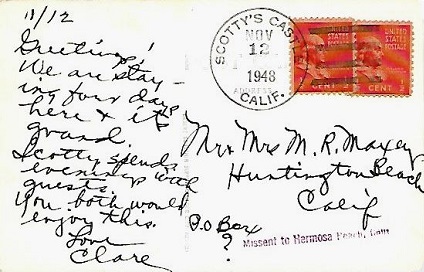 11/12
Greetings!
We are stay-
ing four days
here & it's
grand.
Scotty spends
evenings with
guests.
You both would
enjoy this.
Love
Clare
SCOTTY'S CASTLE
NOV
12
1948
CALIF.
ADDRESS
UNITED STATES
POSTAGE
CENT 2
UNITED STATES
POSTAGE
CENT 2
Mr & Mrs M. R. Maxey
Huntington Beach
Calif
P.O Box
?
Missent to Hermosa Beach, Calif.